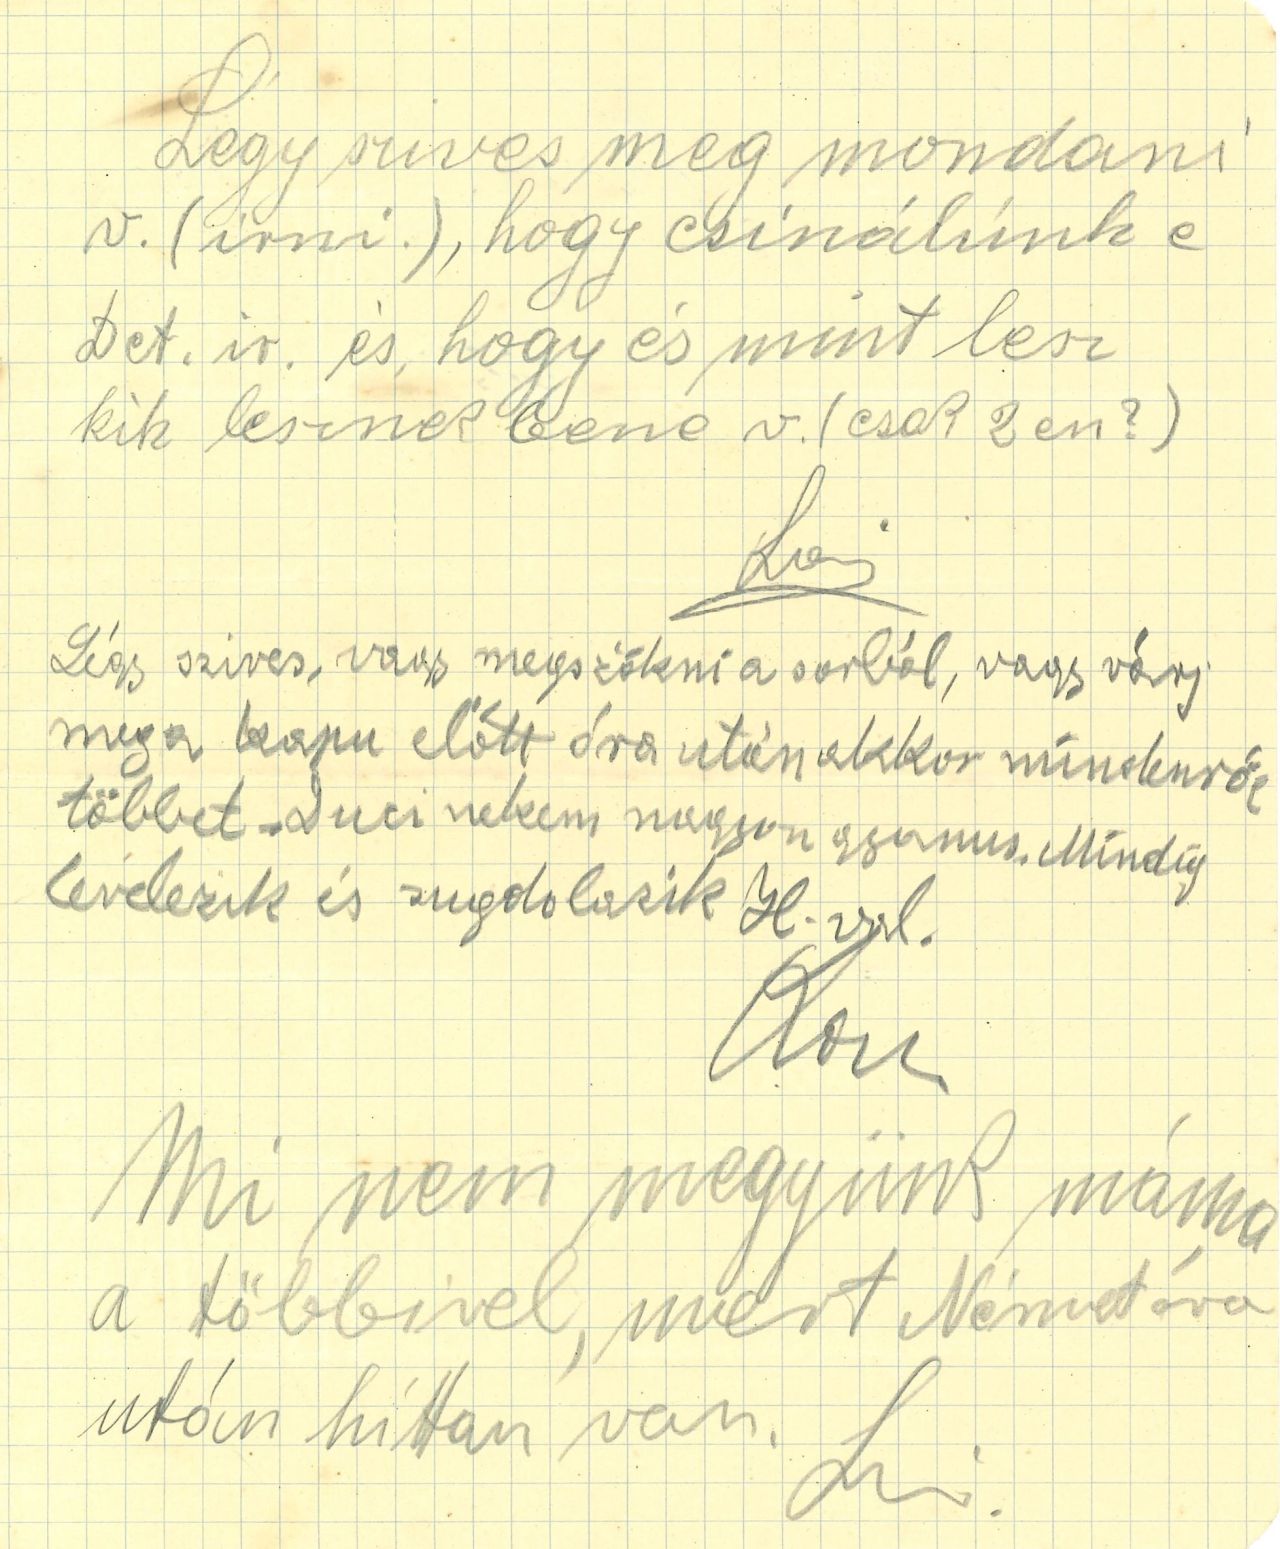 Légy szives meg mondani
v. (irni.), hogy csinálunk e
Det. ir. és, hogy és mint lesz
kik lesznek bene v. (csak 2 en?)
Légy szives, vagy megszökni a sorból, vagy várj
meg a kapu előtt óra után akkor mindenről
többet. Duci nekem nagyon gyanus. Mindig
levelezik és sugdolozik H.-val.
Mi nem megyünk máma
a többivel, mert Németóra
után hittan van.